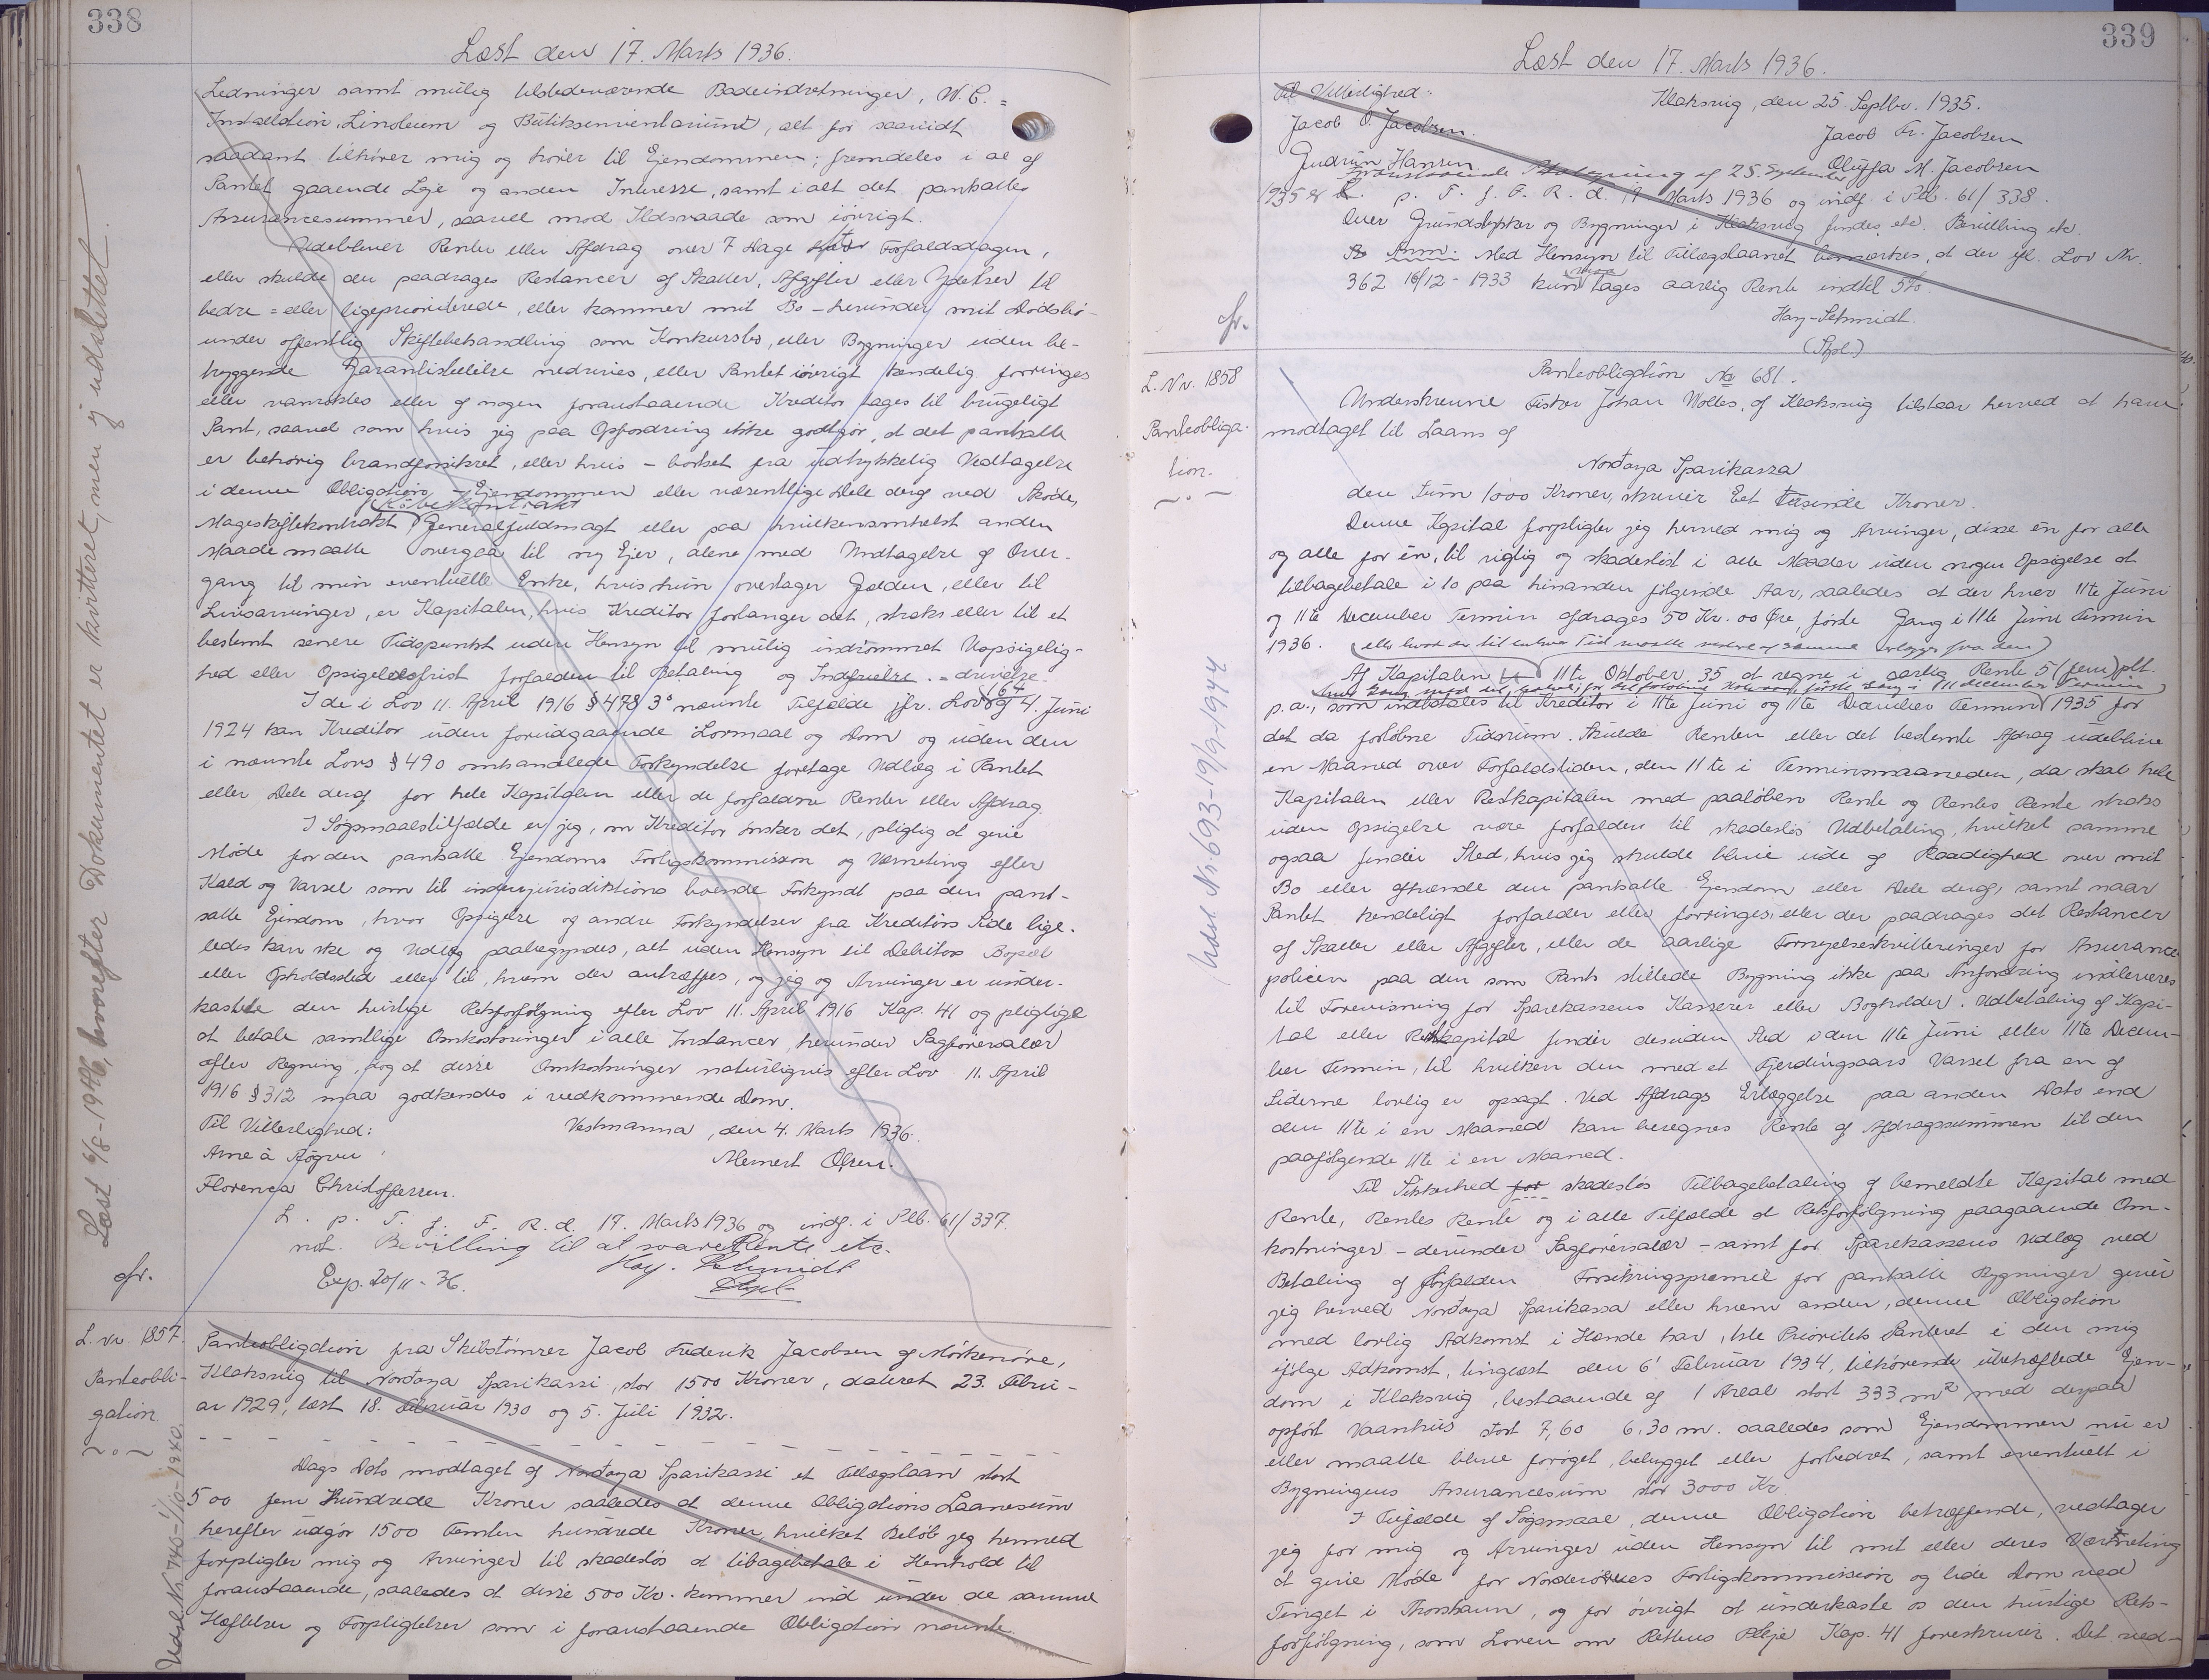 338
Læst den 17. Marts 1936.
Ledninger samt mulig tilstedeværende Badeindretninger, W.C. =
Installation, Linoleum og Butiksinventarium, alt for saavidt
saadant tilhører mig og hører til Ejendommen; fremdeles i al af
Pantet gaaende Leje og anden Interesse, samt i alt det pantsattes
Assurancesummer, saavel mod Ildsvaade som iøvrigt.
Udebliver Renter eller Afdrag over 7 Dage efter Forfaldsdagen,
eller skulde der paadrages Restancer af Skatter, Afgifter eller Ydelser til
bedre = eller ligeprioriterede, eller kommer mit Bo - herunder mit Dødsbo -
under offentlig Skiftebehandling som Konkursbo, eller Bygninger uden be-
tryggende Garantistillelse nedrives, eller Pantet iøvrigt kendelig forringes
eller vanrøgtes eller af nogen foranstaaende Kreditor tages til brugeligt
Pant, saavel som hvis jeg paa Opfordring ikke godtgør, at det pantsatte
er behørig brandforsikret, eller hvis - bortset fra udtrykkelig Vedtagelse
i denne Obligation - Ejendommen eller væsentlige Dele deraf ved Skøde,
Købekontrakt
Mageskiftekontrakt Generalfuldmagt eller paa hvilkensomhelst anden
Maade maatte overgaa til ny Ejer, alene med Undtagelse af Over-
gang til min eventuelle Enke, hvis hun overtager Gælden, eller til
Livsarvinger, er Kapitalen, hvis Kreditor forlanger det, straks eller til et
bestemt senere Tidspunkt uden Hensyn til mulig indrømmet Uopsigelig-
hed eller Opsigelsesfrist forfalden til Betaling og Indfrielse. = drivelse.
I de i Lov 11. April 1916 § 478 3° nævnte Tilfælde jfr. Lov 164 af 4. Juni
1924 kan Kreditor uden forudgaaende Lovmaal og Dom og uden den
i nævnte Lovs § 490 omhandlede Forkyndelse foretage Udlæg i Pantet
eller Dele deraf for hele Kapitalen eller de forfaldne Renter eller Afdrag.
I Søgsmaalstilfælde er jeg, om Kreditor ønsker det, pligtig at give
Møde for den pantsatte Ejendoms Forligskommission og Værneting efter
Kald og Varsel som til indenjurisdiktions boende Forkyndt paa den pant-
satte Ejendom, hvor Opsigelse og andre Forkyndelser fra Kreditors Side lige-
ledes kan ske og Udlæg paabegyndes, alt uden Hensyn til Debitors Bopæl
eller Opholdssted eller til, hvem der antræffes, og jeg og Arvinger er under-
kastede den hurtige Retsforfølgning efter Lov 11. April 1916 Kap. 41 og pligtige
at betale samtlige Omkostninger i alle Instancer, herunder Sagførersalær
efter Regning, dog at disse Omkostninger naturligvis efter Lov 11. April
1916 § 312 maa godkendes i vedkommende Dom.
Til Vitterlighed: Vestmanna, den 4. Marts 1936.
Arne á Røgvu Memert Olsen.
Florenca Christoffersen.
L. p. T. f. F. R. d. 17. Marts 1936 og indf. i Plb. 61/337.
not. Bevilling til at svare Rente etc.
Hay-Schmidt
Exp. 20/11 - 36. Spl.
cfr.
Læst 6/8-1946, hvorefter Dokumentet er kvitteret, men ej udslettet.
L. Nr. 1857.
Panteobli-
gation
~ o ~
Udsl. Nr. 745 - 1/10 - 1940.
Panteobligation fra Skibstømrer Jacob Frederik Jacobsen af Mørkenøre,
Klaksvig til Nordoya Sparikassi, stor 1500 Kroner, dateret 23. Febru-
ar 1929, læst 18. Februar 1930 og 5. Juli 1932.
Dags Dato modtaget af Nordoya Sparikassi et Tillægslaan stort
500 fem Hundrede Kroner saaledes at denne Obligations Laanesum
herefter udgør 1500 Femten hundrede Kroner, hvilket Beløb jeg herved
forpligter mig og Arvinger til skadesløs at tilbagebetale i Henhold til
foranstaaende, saaledes at disse 500 Kr. kommer ind under de samme
Hæftelser og Forpligtelser som i foranstaaende Obligation nævnte.
339
Læst den 17. Marts 1936.
Til Vitterlighed: Klaksvig, den 25 Septbr. 1935.
Jacob O. Jacobsen. Jacob Fr. Jacobsen
Gudrun Hansen Oluffa M. Jacobsen
Foranstaaende af 25. September
1935 er L. p. T. f. F. R. d. 17. Marts 1936 og indf. i Plb. 61/338.
Over Grundstykker og Bygninger i Klaksvig findes etc. Bevilling etc.
Anm: Med Hensyn til Tillægslaanet bemærkes, at der efl. Lov Nr.
362 18/12 - 1933 kun maa tages aarlig Rente indtil 5%.
Hay-Schmidt.
(Spl.)
cfr.
L. Nr. 1858
Panteobliga-
tion.
~ . ~
Udsl. Nr. 693 - 19/9-1944
Panteobligation No 681.
Underskrevne Fisker Johan Wolles, af Klaksvig tilstaar herved at have
modtaget til Laans af
Nordoya Sparikassa
den Sum 1000 Kroner, skriver Eet Tusinde Kroner.
Denne Kapital forpligter jeg herved mig og Arvinger, disse en for alle
og alle for èn, til rigtig og skadesløst i alle Maader uden nogen Opsigelse at
tilbagebetale i 10 paa hinanden følgende Aar, saaledes at der hver 11te Juni
og 11te December Termin afdrages 50 Kr. 00 Øre, første Gang i 11te Juni Termin
1936. (eller hvad der til enhver Tid maatte
Af Kapitalen 11te Oktober 35 at regne i aarlig Rente 5 (fem) pCt.
p.a., som indbetales til Kreditor i 11te Juni og 11te December Termin 1935 for
det da forløbne Tidsrum. Skulde Renten eller det bestemte Afdrag udeblive
en Maaned over Forfaldstiden, den 11te i Terminsmaaneden, da skal hele
Kapitalen eller Restkapitalen med paaløben Rente og Rentes Rente straks
uden Opsigelse være forfalden til skadesløs Udbetaling, hvilket samme
ogsaa finder Sted, hvis jeg skulde blive ude af Raadighed over mit
Bo eller afhænde den pantsatte Ejendom eller Dele deraf, samt naar
Pantet kendeligt forfalder eller forringes, eller der paadrages det Restancer
af Skatter eller Afgifter, eller de aarlige Fornyelseskvitteringer for Assurance
policen paa den som Pant stillede Bygning ikke paa Anfordring indleveres
til Forevisning for Sparekassens Kasserer eller Bogholder. Udbetaling af Kapi-
tal eller Restkapital finder desuden Sted i den 11te Juni eller 11te Decem-
ber Termin, til hvilken den med et Fjerdingaars Varsel fra en af
Siderne lovlig er opsagt. Ved Afdrags Erlæggelse paa anden Dato end
den 11te i en Maaned kan beregnes Rente af Afdragssummen til den
paafølgende 11te i en Maaned.
Til Sikkerhed for skadesløs Tilbagebetaling af bemeldte Kapital med
Rente, Rentes Rente og i alle Tilfælde at Retsforfølgning paagaaende Om-
kostninger - derunder Sagførersalær - samt for Sparekassens Udlæg ved
Betaling af forfalden Forsikringspræmie for pantsatte Bygninger giver
jeg herved Nordoya Sparikassa eller hvem anden, denne Obligation
med lovlig Adkomst i Hænde har, 1ste Prioritets Panteret i den mig
ifølge Adkomst, tinglæst den 6' Februar 1934, tilhørende ubehæftede Ejen-
dom i Klaksvig, bestaaende af 1 Areal stort 333 m² med derpaa
opført Vaanhus stort 7,60 6,30 m. saaledes som Ejendommen nu er
eller maatte blive forøget, bebygget eller forbedret, samt eventuelt i
Bygningens Assurancesum stor 3000 Kr.
I Tilfælde af Søgsmaal, denne Obligation betræffende, vedtager
jeg for mig og Arvinger uden Hensyn til mit eller deres Værneting
at give Møde for Norderøernes Forligskommission og lide Dom ved
Tinget i Thorshavn, og for øvrigt at underkaste os den hurtige Rets-
forfølgning, som Loven om Rettens Pleje Kap. 41 foreskriver. Det ved-